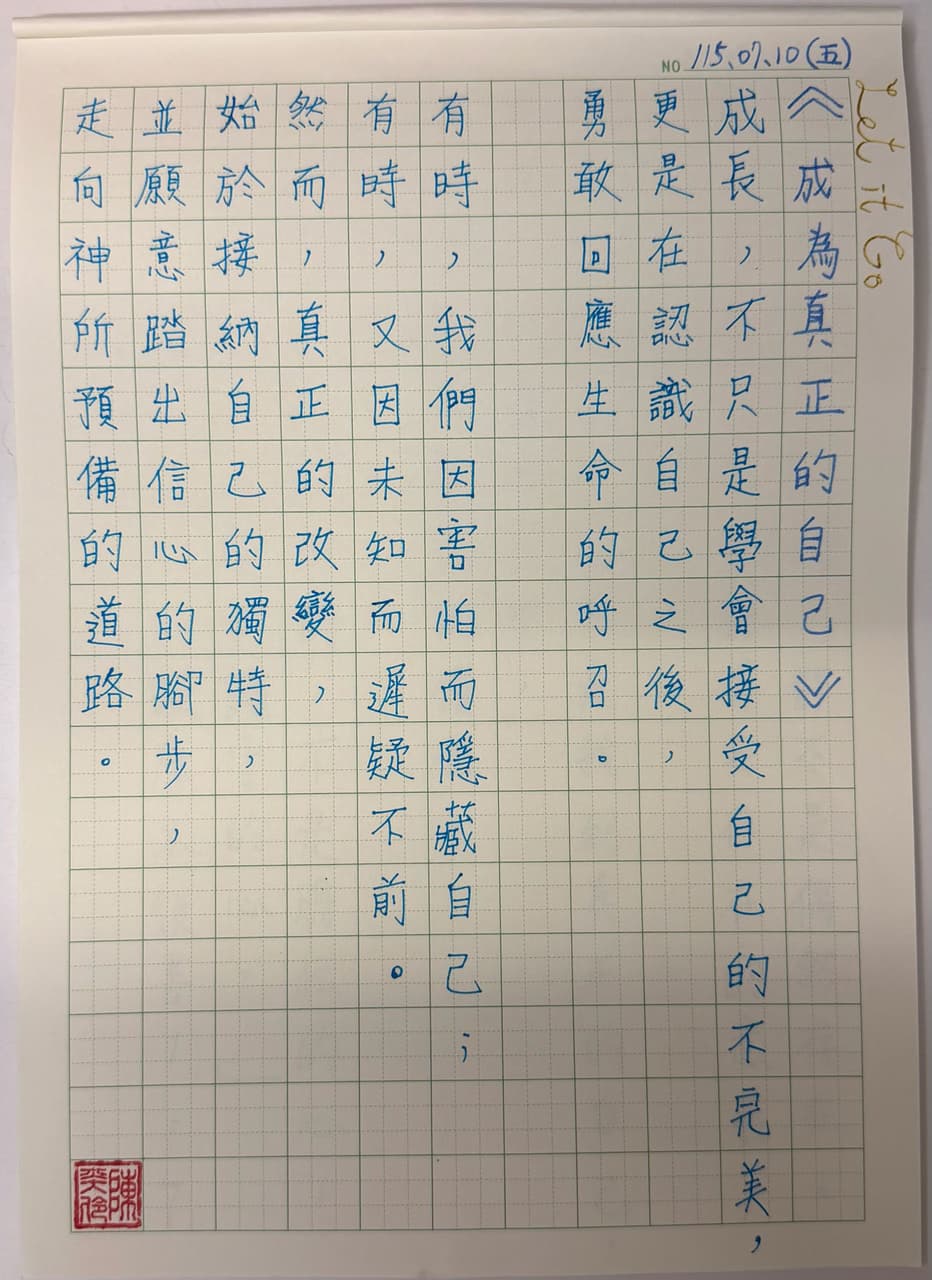 NO 115.07.10(五)
Let it Go
《成為真正的自己》
成長,不只是學會接受自己的不完美,
更是在認識自己之後,
勇敢回應生命的呼召。
有時,我們因害怕而隱藏自己;
有時,又因未知而遲疑不前。
然而,真正的改變,
始於接納自己的獨特,
並願意踏出信心的腳步,
走向神所預備的道路。
陳